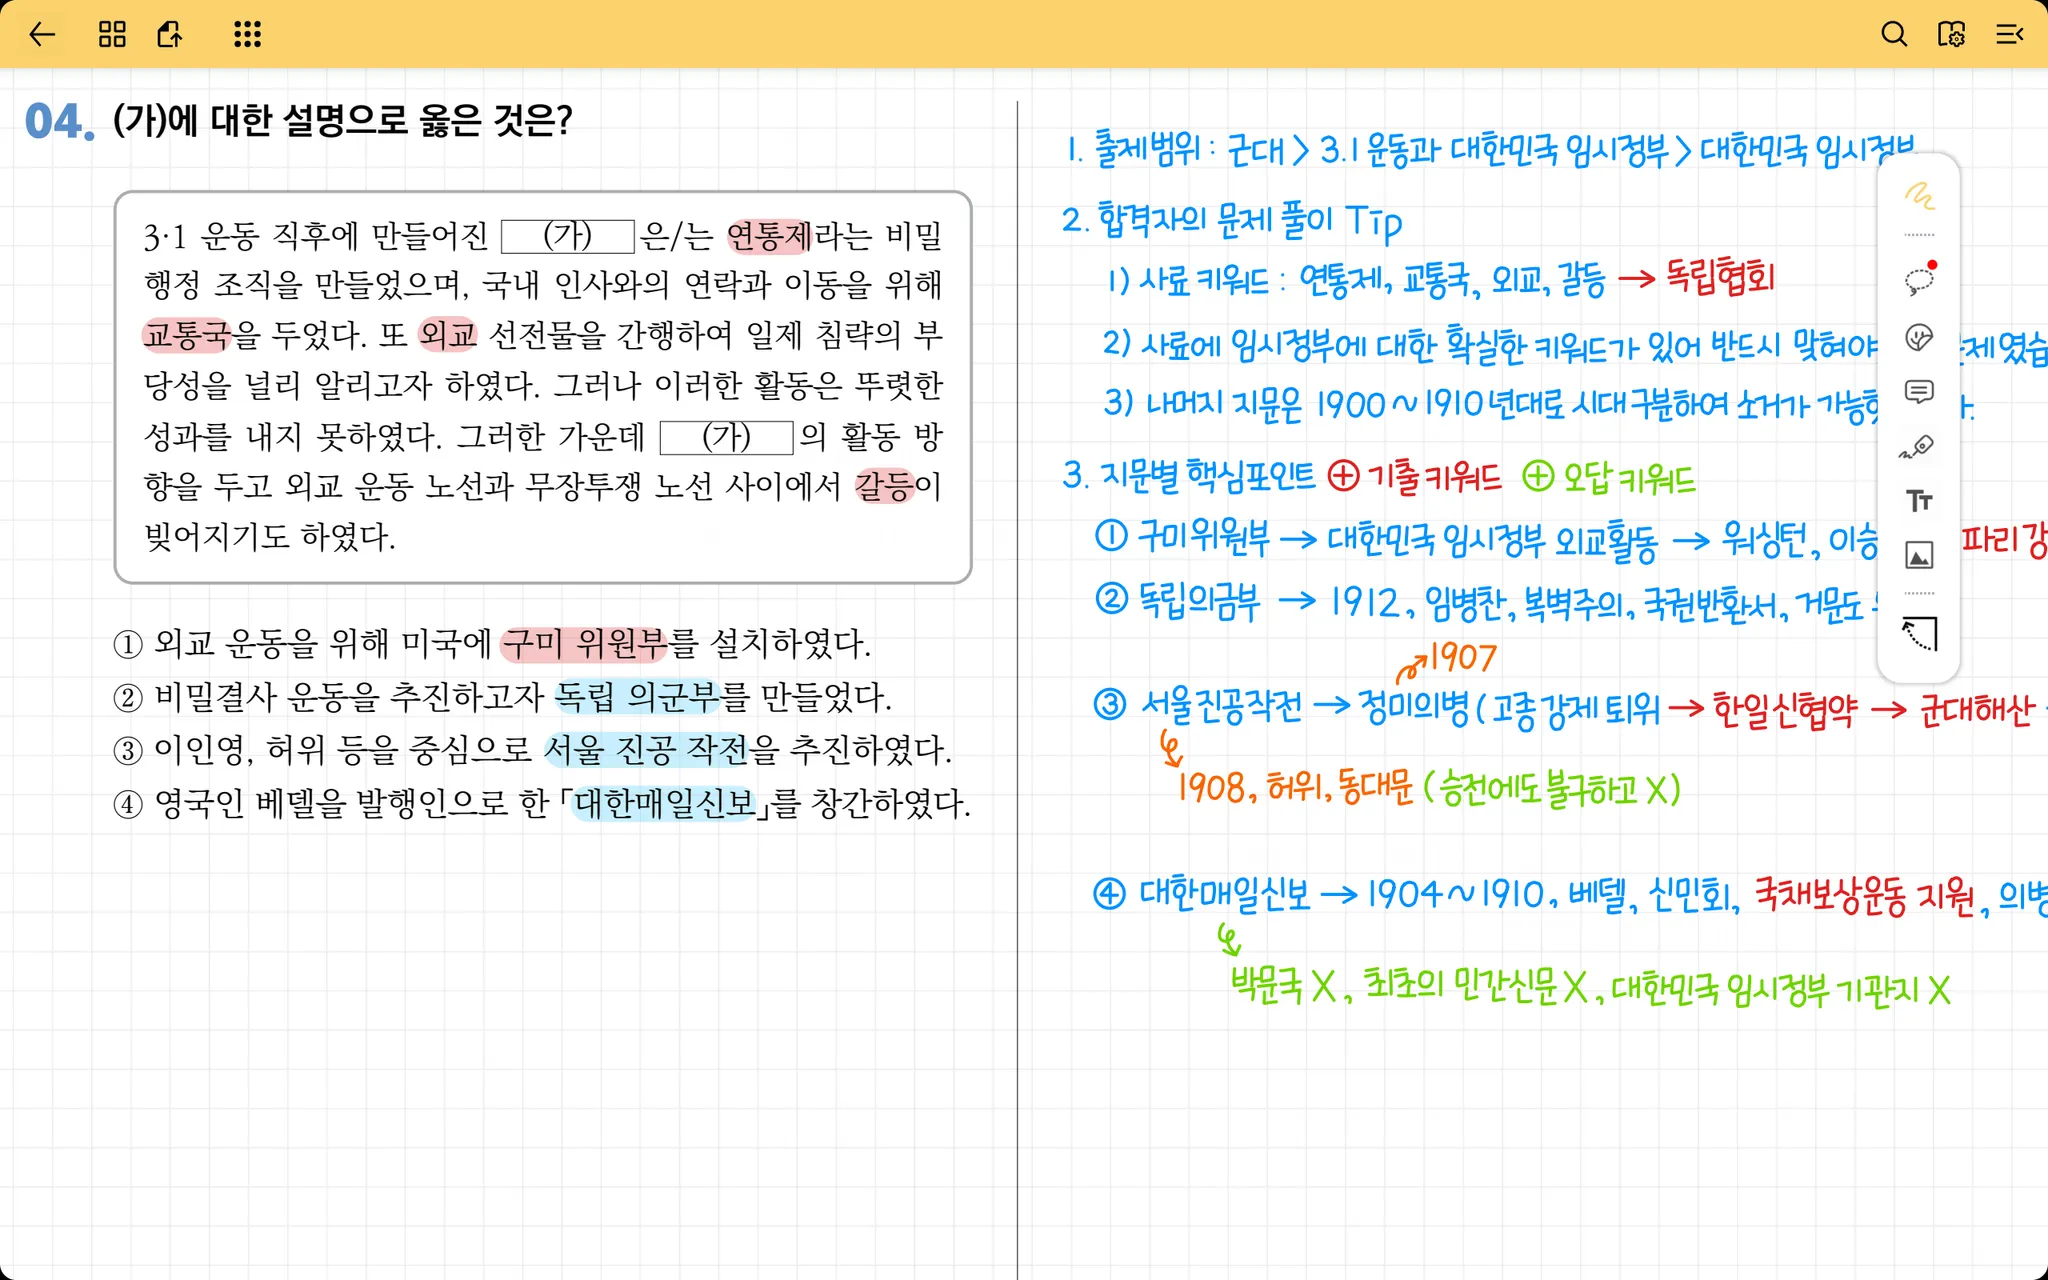 04. (가)에 대한 설명으로 옳은 것은?
3·1 운동 직후에 만들어진 (가) 은/는 연통제라는 비밀
행정 조직을 만들었으며, 국내 인사와의 연락과 이동을 위해
교통국을 두었다. 또 외교 선전물을 간행하여 일제 침략의 부
당성을 널리 알리고자 하였다. 그러나 이러한 활동은 뚜렷한
성과를 내지 못하였다. 그러한 가운데 (가) 의 활동 방
향을 두고 외교 운동 노선과 무장투쟁 노선 사이에서 갈등이
빚어지기도 하였다.
① 외교 운동을 위해 미국에 구미 위원부를 설치하였다.
② 비밀결사 운동을 추진하고자 독립 의군부를 만들었다.
③ 이인영, 허위 등을 중심으로 서울 진공 작전을 추진하였다.
④ 영국인 베델을 발행인으로 한 「대한매일신보」를 창간하였다.
1. 출제범위 : 근대 > 3.1 운동과 대한민국 임시정부 > 대한민국 임시정부
2. 합격자의 문제 풀이 Tip
1) 사료 키워드 : 연통제, 교통국, 외교, 갈등 → 독립협회
2) 사료에 임시정부에 대한 확실한 키워드가 있어 반드시 맞혀야
3) 나머지 지문은 1900 ~ 1910년대로 시대구분하여 소거가
3. 지문별 핵심포인트 ⊕ 기출 키워드 ⊕ 오답 키워드
① 구미위원부 → 대한민국 임시정부 외교활동 → 워싱턴, 파리
② 독립의금부 → 1912, 임병찬, 복벽주의, 국권반환서, 거문도
1907
③ 서울진공작전 → 정미의병 (고종 강제 퇴위 → 한일신협약 → 군대해산
1908, 허위, 동대문 (승전에도 불구하고 X)
④ 대한매일신보 → 1904 ~ 1910, 베델, 신민회, 국채보상운동 지원, 의병
박문국 X, 최초의 민간신문 X, 대한민국 임시정부 기관지 X
TT